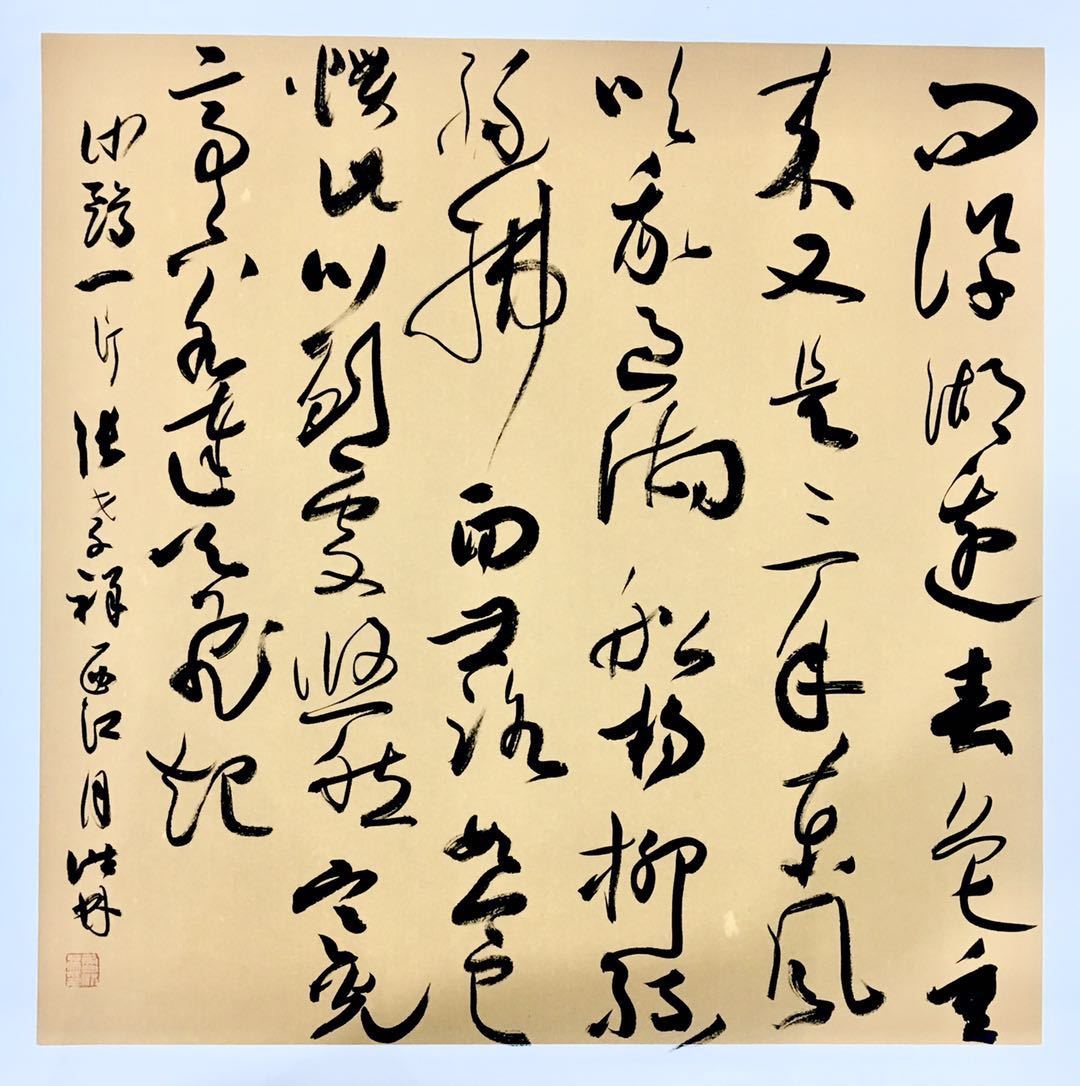 问讯湖边春色重
来又是三年东风
吹我过湖船杨柳丝
丝拂面世路如今已
惯此心到處悠然寒光
亭下水连天飞起
沙鸥一片 张孝祥西江月